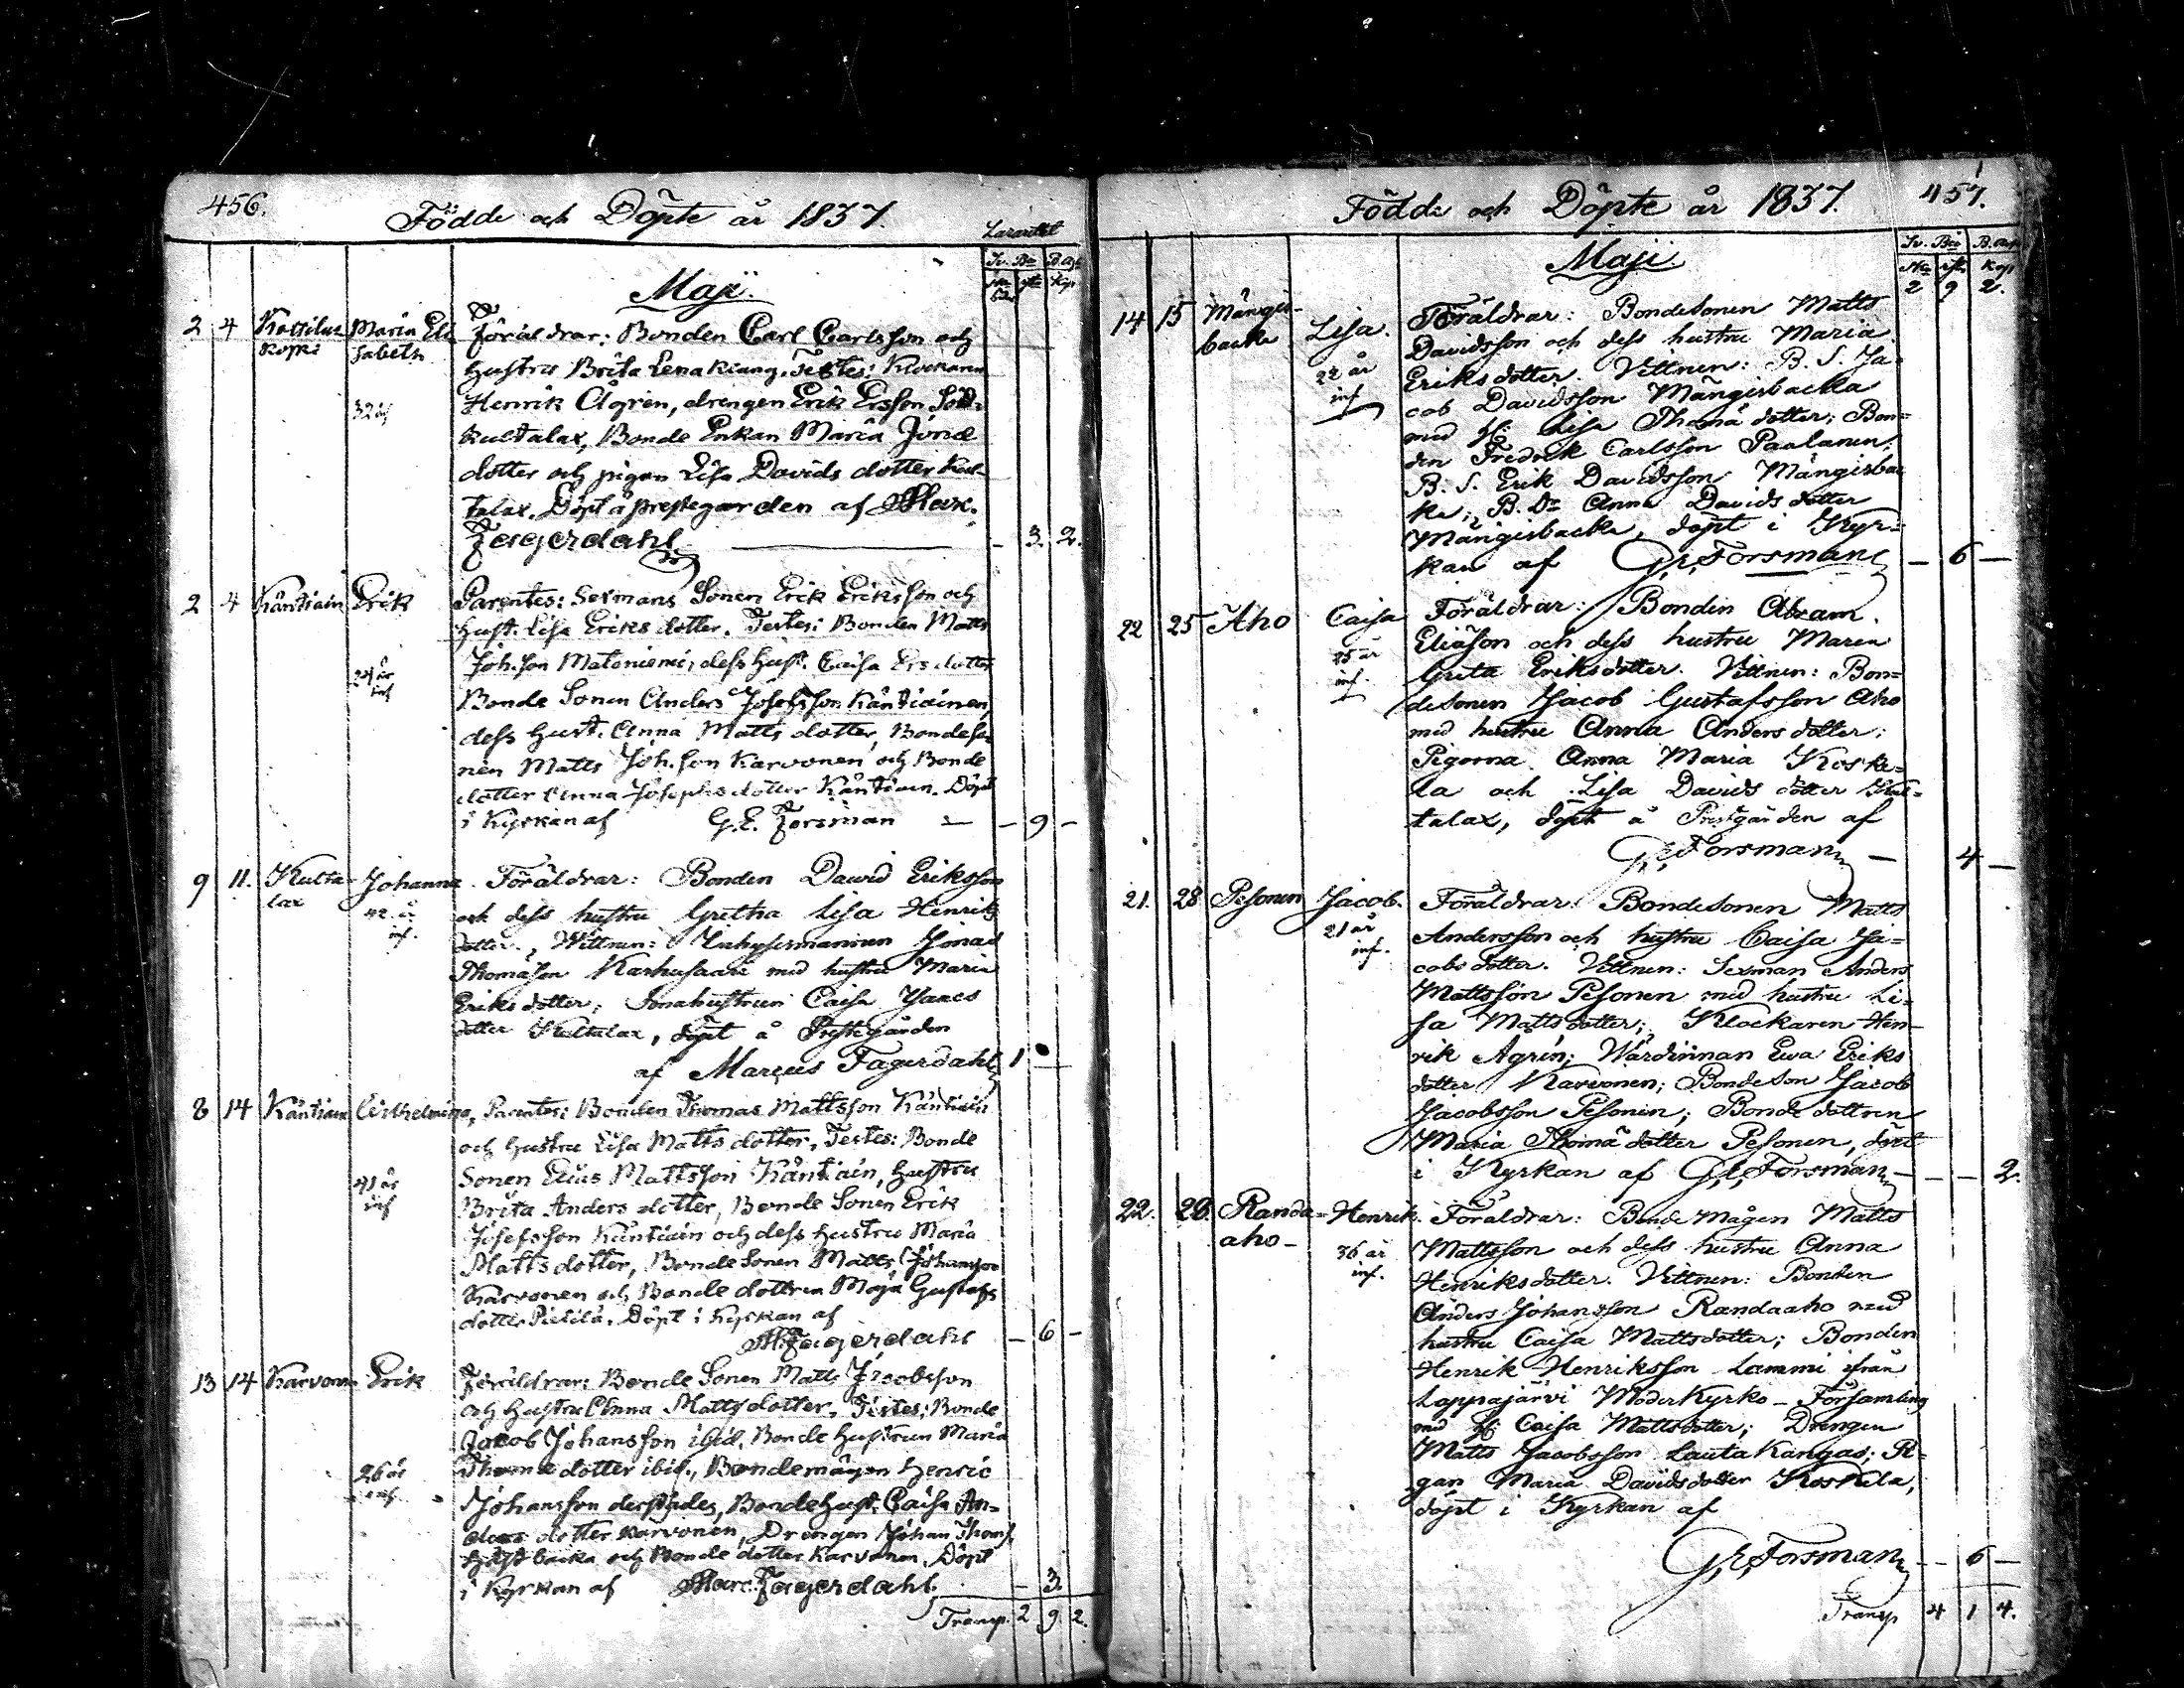 456.
Födde och Döpte år 1837.
Lazarettet
Sv. Bco B. Ass
Maji.
2 4 Kattilus Maria Eli Föräldrar: Bonden Carl Carlsson och
koski sabeth
hustru Brita Lena Kiang. Testes: Klockaren
32 år Henrik Ågren, drengen Erik Ersson Söd.
kultalax, Bonde Enkan Maria Jonæ
dotter och pigan Lisa Davids dotter Kul-
talax. Döpt å prestegården af Marc.
Fagerdahl. — 3. 2.
2 4 Käntiain Erik Parentes: Sexmans Sonen Erik Eriksson och
hust. Lisa Eriks dotter. Testes: Bonden Matts
24 år inf Joh.son Mataniemi, dess hust. Caisa Ers dotter
Bonde Sonen Anders Josefsson Käntiainen,
dess hust. Anna Matts dotter, Bondeso-
nen Matts Joh.son Karvonen och Bonde
dotter Anna Josephs dotter Käntiain. Döpt
i Kyrkan af G.E. Forsman — 9 —
9 11. Kulta- Johanna. Föräldrar: Bonden David Eriksson
lax
42 år inf. och dess hustru Gretha Lisa Henrik
dotter., Wittnen: Jonas
Thomason Karhusaari med hustru Maria
Eriks dotter; Sonahustrun Caisa
dotter Kultalax, döpt å Prestegården
af Marcus Fagerdahl 1 —
8 14 Käntiain Wilhelmina, Parentes: Bonden Thomas Mattsson Käntiain
och hustru Lisa Matts dotter, Testes: Bonde
41 år inf Sonen Elias Mattsson Käntiain, hustru
Brita Anders dotter, Bonde Sonen Erik
Josefsson Käntiain och dess hustru Maria
Matts dotter, Bonde Sonen Matts Johansson
Karvonen och Bonde dottren Maja Gustafs
dotter Pietilä. Döpt i Kyrkan af
M. Fagerdahl — 6 —
13 14 Karvonen Erik Föräldrar: Bonde Sonen Matts Jacobsson
och hustru Anna Matts dotter. Testes: Bonde
Jakob Johansson ibid. Bonde hustrun Maria
26 år inf. Thomæ dotter ibid., Bondemågen Henric
Johansson derstädes, Bonde hust. Caisa An-
ders dotter Karvonen, Drengen Johan Thoms.
backa och Bonde dotter Karvonen. Döpt
i Kyrkan af Marc. Fagerdahl. — 3.
Transp. 2 9 2.
457.
Födde och Döpte år 1837.
Sv. Bco B. Ass
Kop
Maji.
2 9 2.
14 15 Mängis- Lisa. Föräldrar: Bondesonen Matts
backa
22 år inf Davidsson och dess hustru Maria
Eriksdotter. Vittnen: B. S. Ja-
cob Davidsson Mängisbacka
med H: Lisa Thomä dotter; Bon-
den Fredrik Carlsson Paalanen;
B. S. Erik Davidsson Mängisbac
ka; B. Dr Anna Davids dotter
Mängisbacka, döpt i Kyr-
kan af G. E. Forsman — 6 —
22 25 Aho Caisa Föräldrar: Bonden Abram
25 år inf. Eliäson och dess hustru Maria
Greta Eriksdotter. Vittnen: Bon-
desonen Jacob Gustafsson Aho
med hustru Anna Anders dotter;
Pigorna Anna Maria Koske-
la och Lisa Davids dotter Kul-
talax, döpt å Prestgården af
G. E. Forsman — 4 —
21. 28 Pesonen Jacob. Föräldrar: Bondesonen Matts
21 år inf. Andersson och hustru Caisa Ja-
cobs dotter. Vittnen: Sexman Anders
Mattsson Pesonen med hustru Li-
sa Matts dotter; Klockaren Hen-
rik Agrén; Wärdinnan Ewa Eriks
dotter Karvonen; Bondeson Jacob
Jacobsson Pesonen; Bonde dottren
Maria Thomä dotter Pesonen, döpt
i Kyrkan af G. E. Forsman — — 2.
22. 28. Randa- Henrik. Föräldrar: Bonde Mågen Matts
aho-
36 år inf. Mattsson och dess hustru Anna
Henriksdotter. Vittnen: Bonden
Anders Johansson Randaaho med
hustru Caisa Mattsdotter; Bonden
Henrik Henriksson Lammi ifrån
Lappajärvi Moderkyrko-Församling
med H: Caisa Mattsdotter; Drengen
Matts Jacobsson Lautakangas; Pi-
gan Maria Davidsdotter Koskela;
döpt i Kyrkan af
G. E. Forsman — 6 —
Transp 4 1 4.